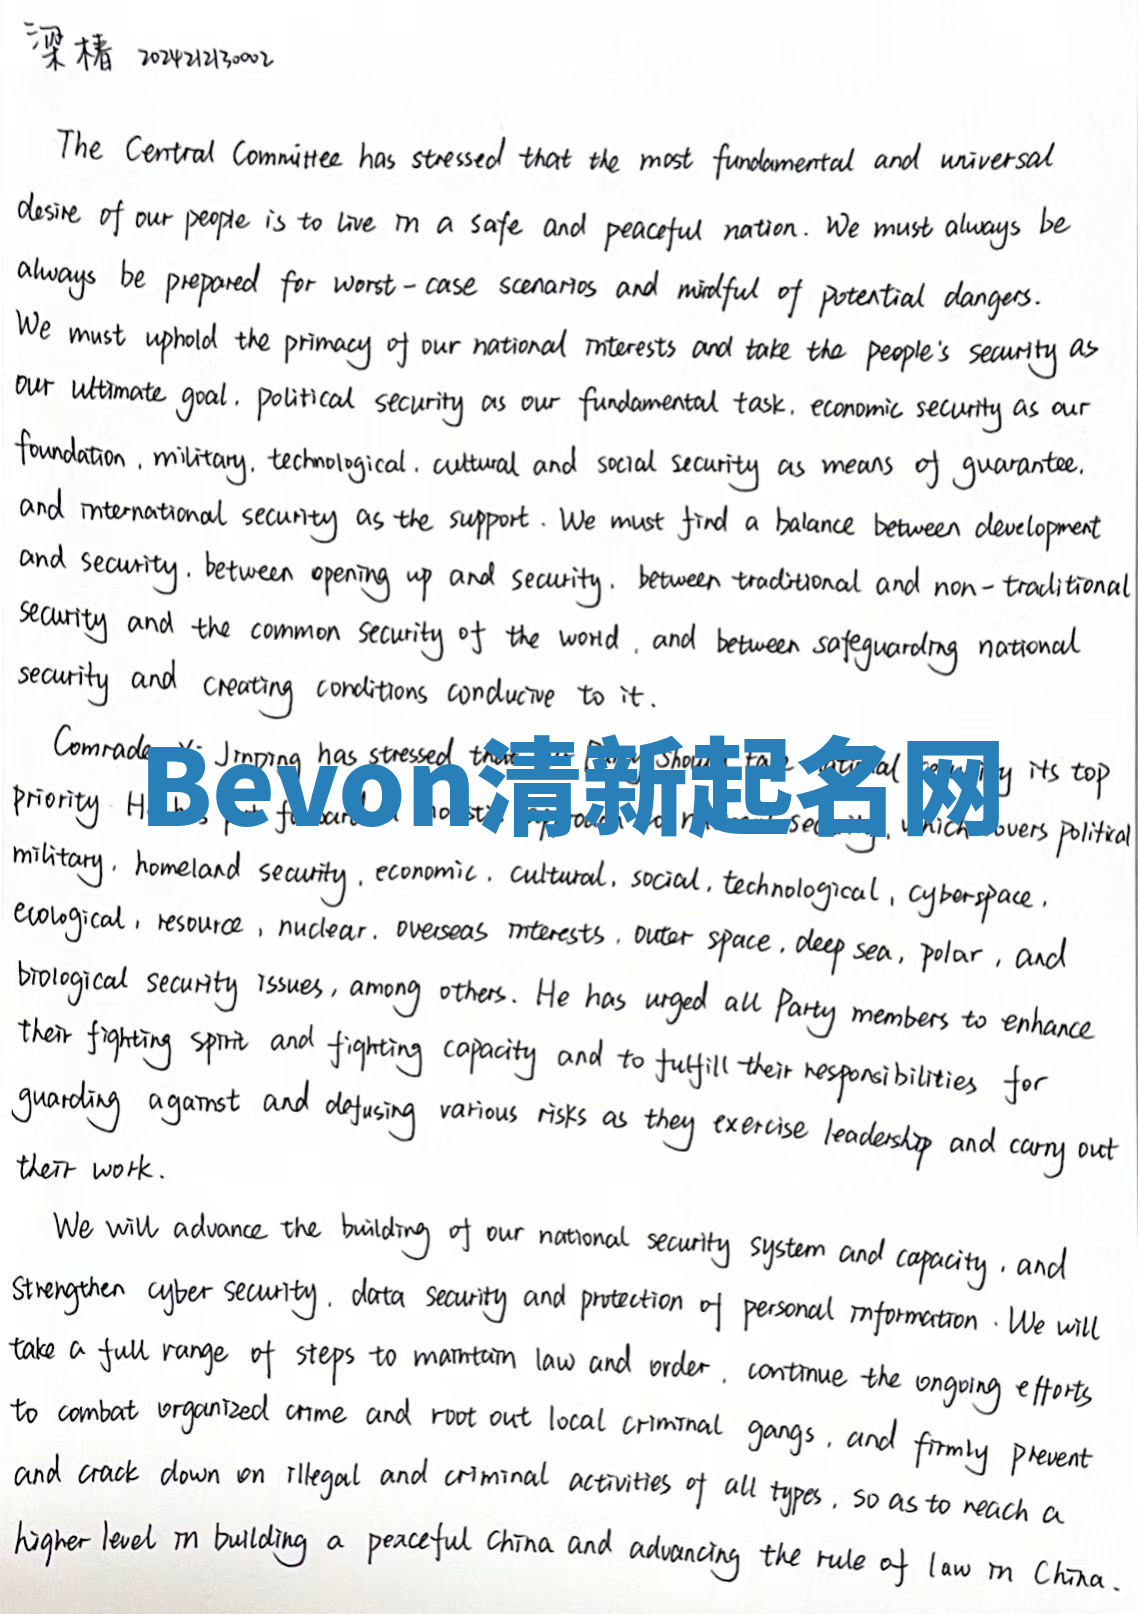 梁椿 2024212130002
The Central Committee has stressed that the most fundamental and universal
desire of our people is to live in a safe and peaceful nation. We must always be
always be prepared for worst-case scenarios and mindful of potential dangers.
We must uphold the primacy of our national interests and take the people's security as
our ultimate goal, political security as our fundamental task, economic security as our
foundation, military, technological, cultural and social security as means of guarantee,
and international security as the support. We must find a balance between development
and security, between opening up and security, between traditional and non-traditional
security and the common security of the world, and between safeguarding national
security and creating conditions conducive to it.
Comrade Xi Jinping has stressed that Party should take national security its top
Bevon清新起名网
priority. He has put forward a holistic approach to national security, which covers political
military, homeland security, economic, cultural, social, technological, cyberspace,
ecological, resource, nuclear, overseas interests, outer space, deep sea, polar, and
biological security issues, among others. He has urged all Party members to enhance
their fighting spirit and fighting capacity and to fulfill their responsibilities for
guarding against and defusing various risks as they exercise leadership and carry out
their work.
We will advance the building of our national security system and capacity, and
strengthen cyber security, data security and protection of personal information. We will
take a full range of steps to maintain law and order, continue the ongoing efforts
to combat organized crime and root out local criminal gangs, and firmly prevent
and crack down on illegal and criminal activities of all types, so as to reach a
higher level in building a peaceful China and advancing the rule of law in China.